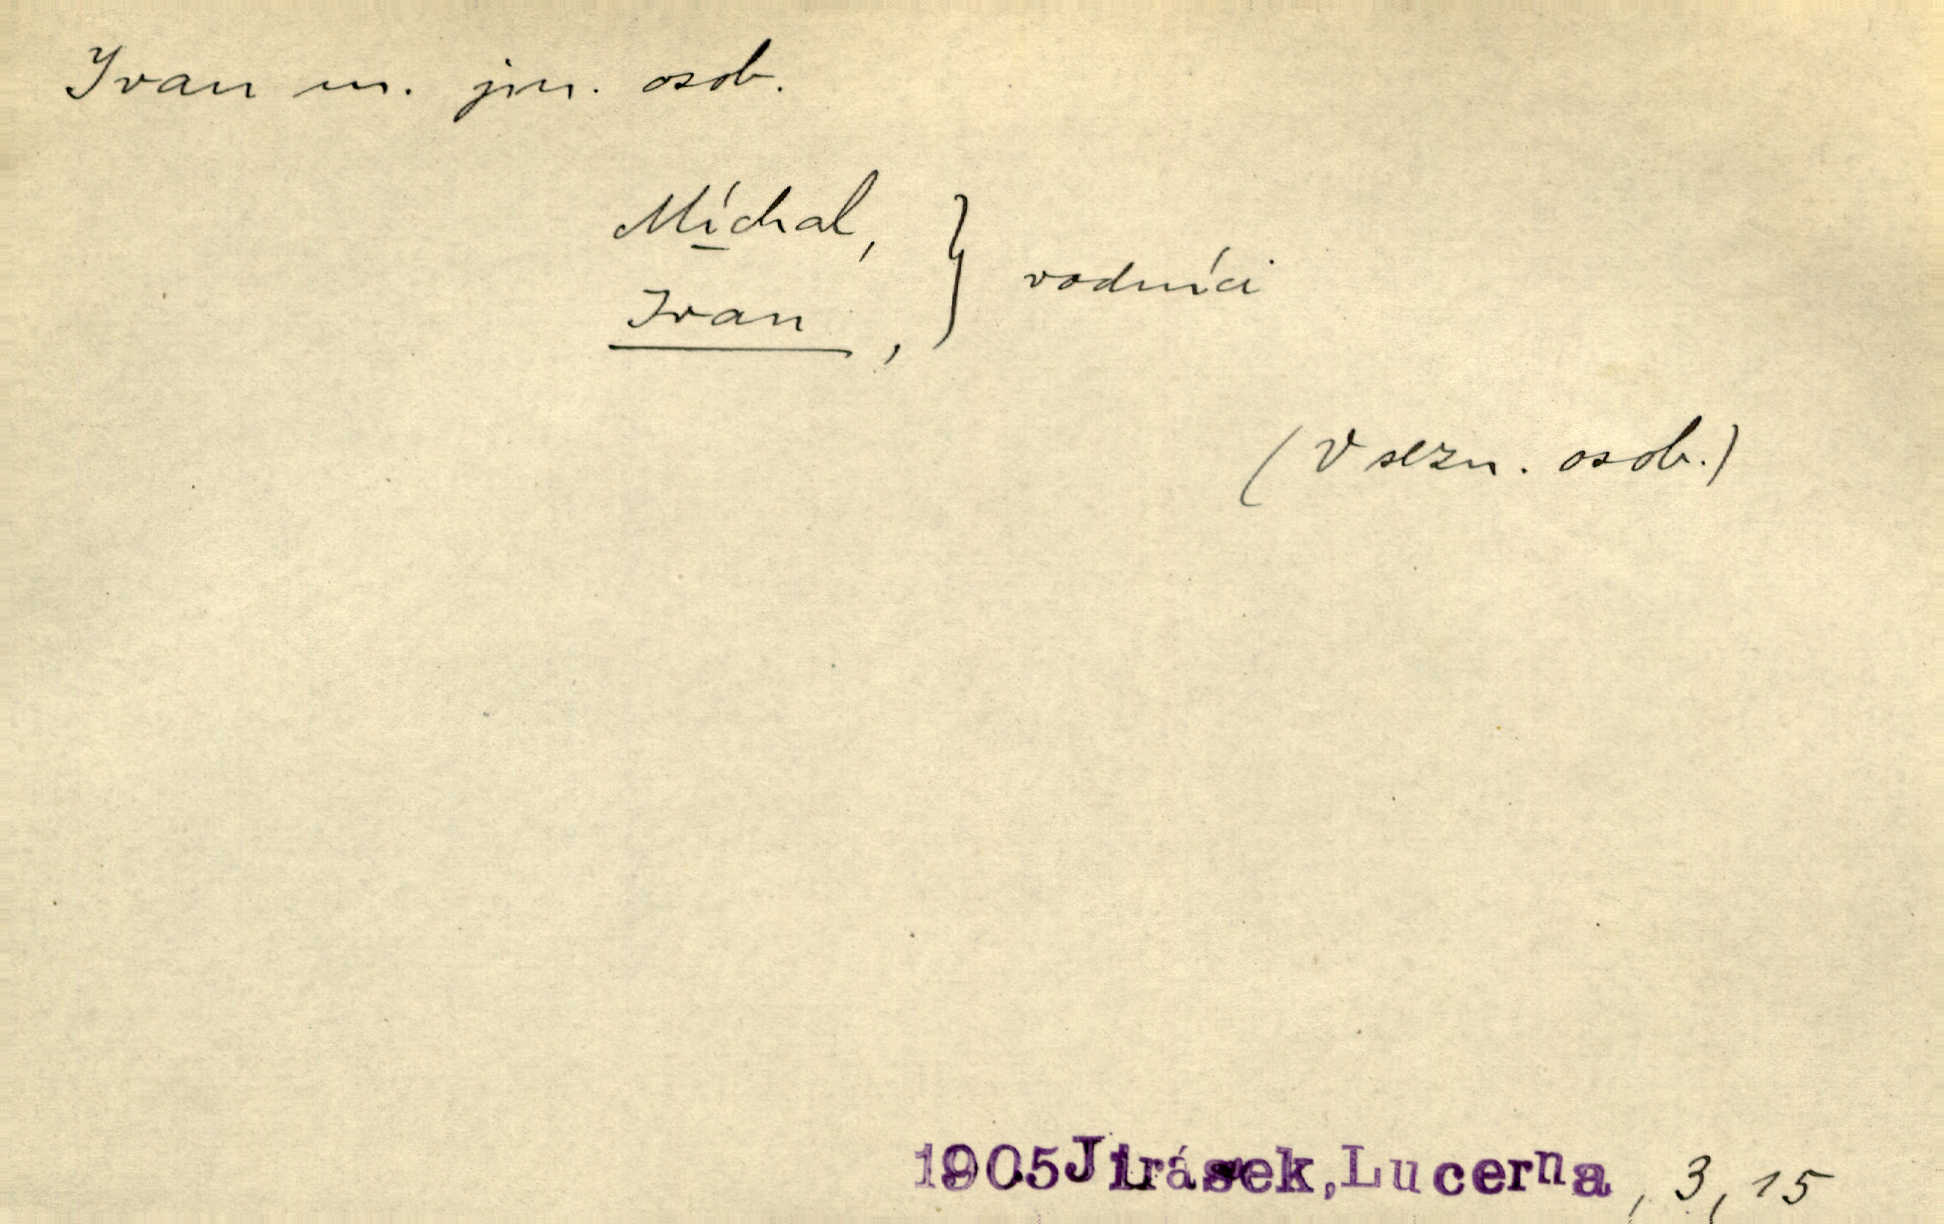 Ivan m. jm. osob.
Míchal,
Ivan, } vodníci
(V sezn. osob.)
1905 Jirásek, Lucerna, 3, 15